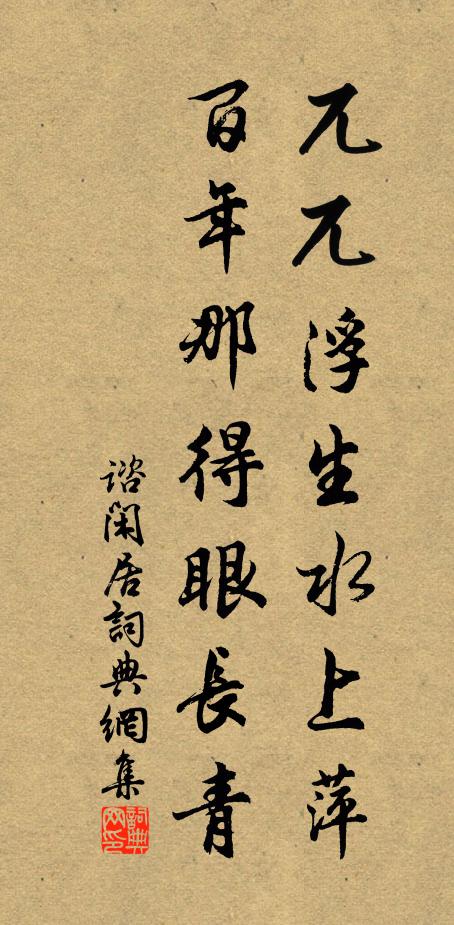 兀兀浮生水上萍
百年那得眼長青
諮閑居詞典網集
詞典
网印